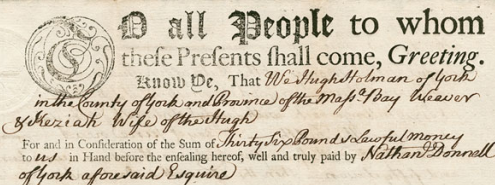 TO all People to whom
these Presents shall come, Greeting.
Know Ye, That We Hugh Holman of York
in the County of York and Province of the Massa. Bay Weaver
& Keziah Wife of the Hugh
For and in Consideration of the Sum of Thirty Six Pounds Lawful Money
to us in Hand before the ensealing hereof, well and truly paid by Nathan Donnell
of York aforesaid Esquire